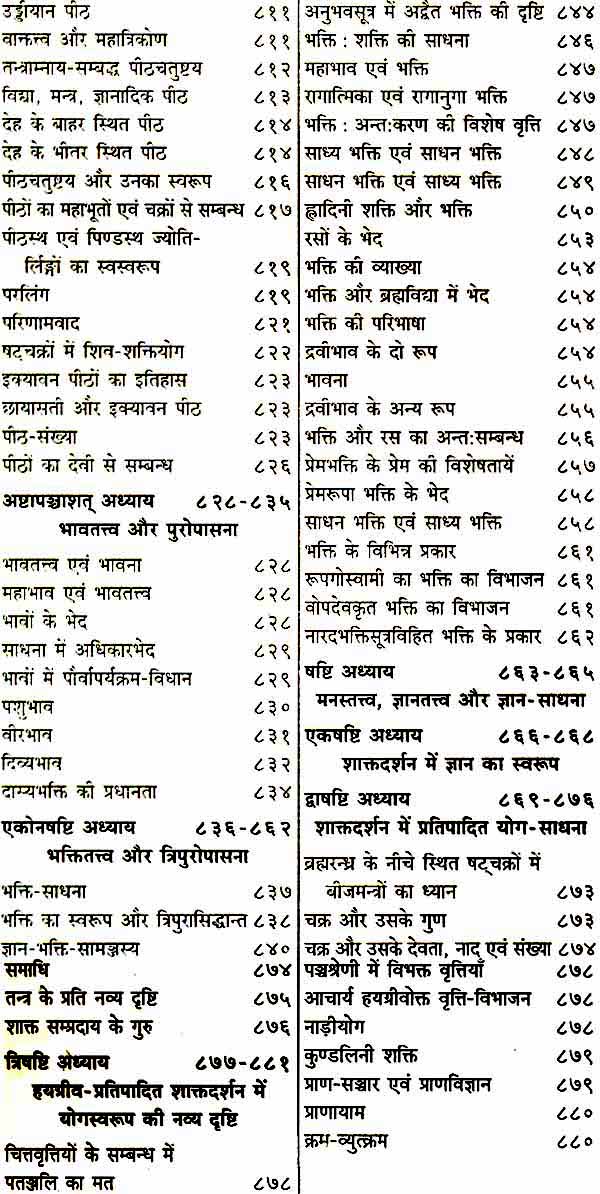 उड्डीयान पीठ ८११
वाक्तत्त्व और महात्रिकोण ८११
तन्त्राम्नाय-सम्बद्ध पीठचतुष्टय ८१२
विद्या, मन्त्र, ज्ञानादिक पीठ ८१३
देह के बाहर स्थित पीठ ८१४
देह के भीतर स्थित पीठ ८१४
पीठचतुष्टय और उनका स्वरूप ८१६
पीठों का महाभूतों एवं चक्रों से सम्बन्ध ८१७
पीठस्थ एवं पिण्डस्थ ज्योति-
र्लिङ्गों का स्वस्वरूप ८१९
परलिंग ८१९
परिणामवाद ८२१
षट्चक्रों में शिव-शक्तियोग ८२२
इक्यावन पीठों का इतिहास ८२३
छायासती और इक्यावन पीठ ८२३
पीठ-संख्या ८२३
पीठों का देवी से सम्बन्ध ८२६
अष्टापञ्चाशत् अध्याय ८२८-८३५
भावतत्त्व और पुरोपासना
भावतत्त्व एवं भावना ८२८
महाभाव एवं भावतत्त्व ८२८
भावों के भेद ८२८
साधना में अधिकारभेद ८२९
भावों में पौर्वापर्यक्रम-विधान ८२९
पशुभाव ८३०
वीरभाव ८३१
दिव्यभाव ८३२
दास्यभक्ति की प्रधानता ८३४
एकोनषष्टि अध्याय ८३६-८६२
भक्तितत्त्व और त्रिपुरोपासना
भक्ति-साधना ८३७
भक्ति का स्वरूप और त्रिपुरासिद्धान्त ८३८
ज्ञान-भक्ति-सामञ्जस्य ८४०
समाधि ८७४
तन्त्र के प्रति नव्य दृष्टि ८७५
शाक्त सम्प्रदाय के गुरु ८७६
त्रिषष्टि अध्याय ८७७-८८१
हयग्रीव-प्रतिपादित शाक्तदर्शन में
योगस्वरूप की नव्य दृष्टि
चित्तवृत्तियों के सम्बन्ध में
पतञ्जलि का मत ८७८
अनुभवसूत्र में अद्वैत भक्ति की दृष्टि ८४४
भक्ति : शक्ति की साधना ८४६
महाभाव एवं भक्ति ८४७
रागात्मिका एवं रागानुगा भक्ति ८४७
भक्ति : अन्त:करण की विशेष वृत्ति ८४७
साध्य भक्ति एवं साधन भक्ति ८४८
साधन भक्ति एवं साध्य भक्ति ८४९
ह्लादिनी शक्ति और भक्ति ८५०
रसों के भेद ८५३
भक्ति की व्याख्या ८५४
भक्ति और ब्रह्मविद्या में भेद ८५४
भक्ति की परिभाषा ८५४
द्रवीभाव के दो रूप ८५४
भावना ८५५
द्रवीभाव के अन्य रूप ८५५
भक्ति और रस का अन्त:सम्बन्ध ८५६
प्रेमभक्ति के प्रेम की विशेषतायें ८५७
प्रेमरूपा भक्ति के भेद ८५८
साधन भक्ति एवं साध्य भक्ति ८५८
भक्ति के विभिन्न प्रकार ८६१
रूपगोस्वामी का भक्ति का विभाजन ८६१
वोपदेवकृत भक्ति का विभाजन ८६१
नारदभक्तिसूत्रविहित भक्ति के प्रकार ८६२
षष्टि अध्याय ८६३-८६५
मनस्तत्त्व, ज्ञानतत्त्व और ज्ञान-साधना
एकषष्टि अध्याय ८६६-८६८
शाक्तदर्शन में ज्ञान का स्वरूप
द्वाषष्टि अध्याय ८६९-८७६
शाक्तदर्शन में प्रतिपादित योग-साधना
ब्रह्मरन्ध्र के नीचे स्थित षट्चक्रों में
बीजमन्त्रों का ध्यान ८७३
चक्र और उसके गुण ८७३
चक्र और उसके देवता, नाद एवं संख्या ८७४
पञ्चश्रेणी में विभक्त वृत्तियाँ ८७८
आचार्य हयग्रीवोक्त वृत्ति-विभाजन ८७८
नाड़ीयोग ८७८
कुण्डलिनी शक्ति ८७९
प्राण-सञ्चार एवं प्राणविज्ञान ८७९
प्राणायाम ८८०
क्रम-व्युत्क्रम ८८०